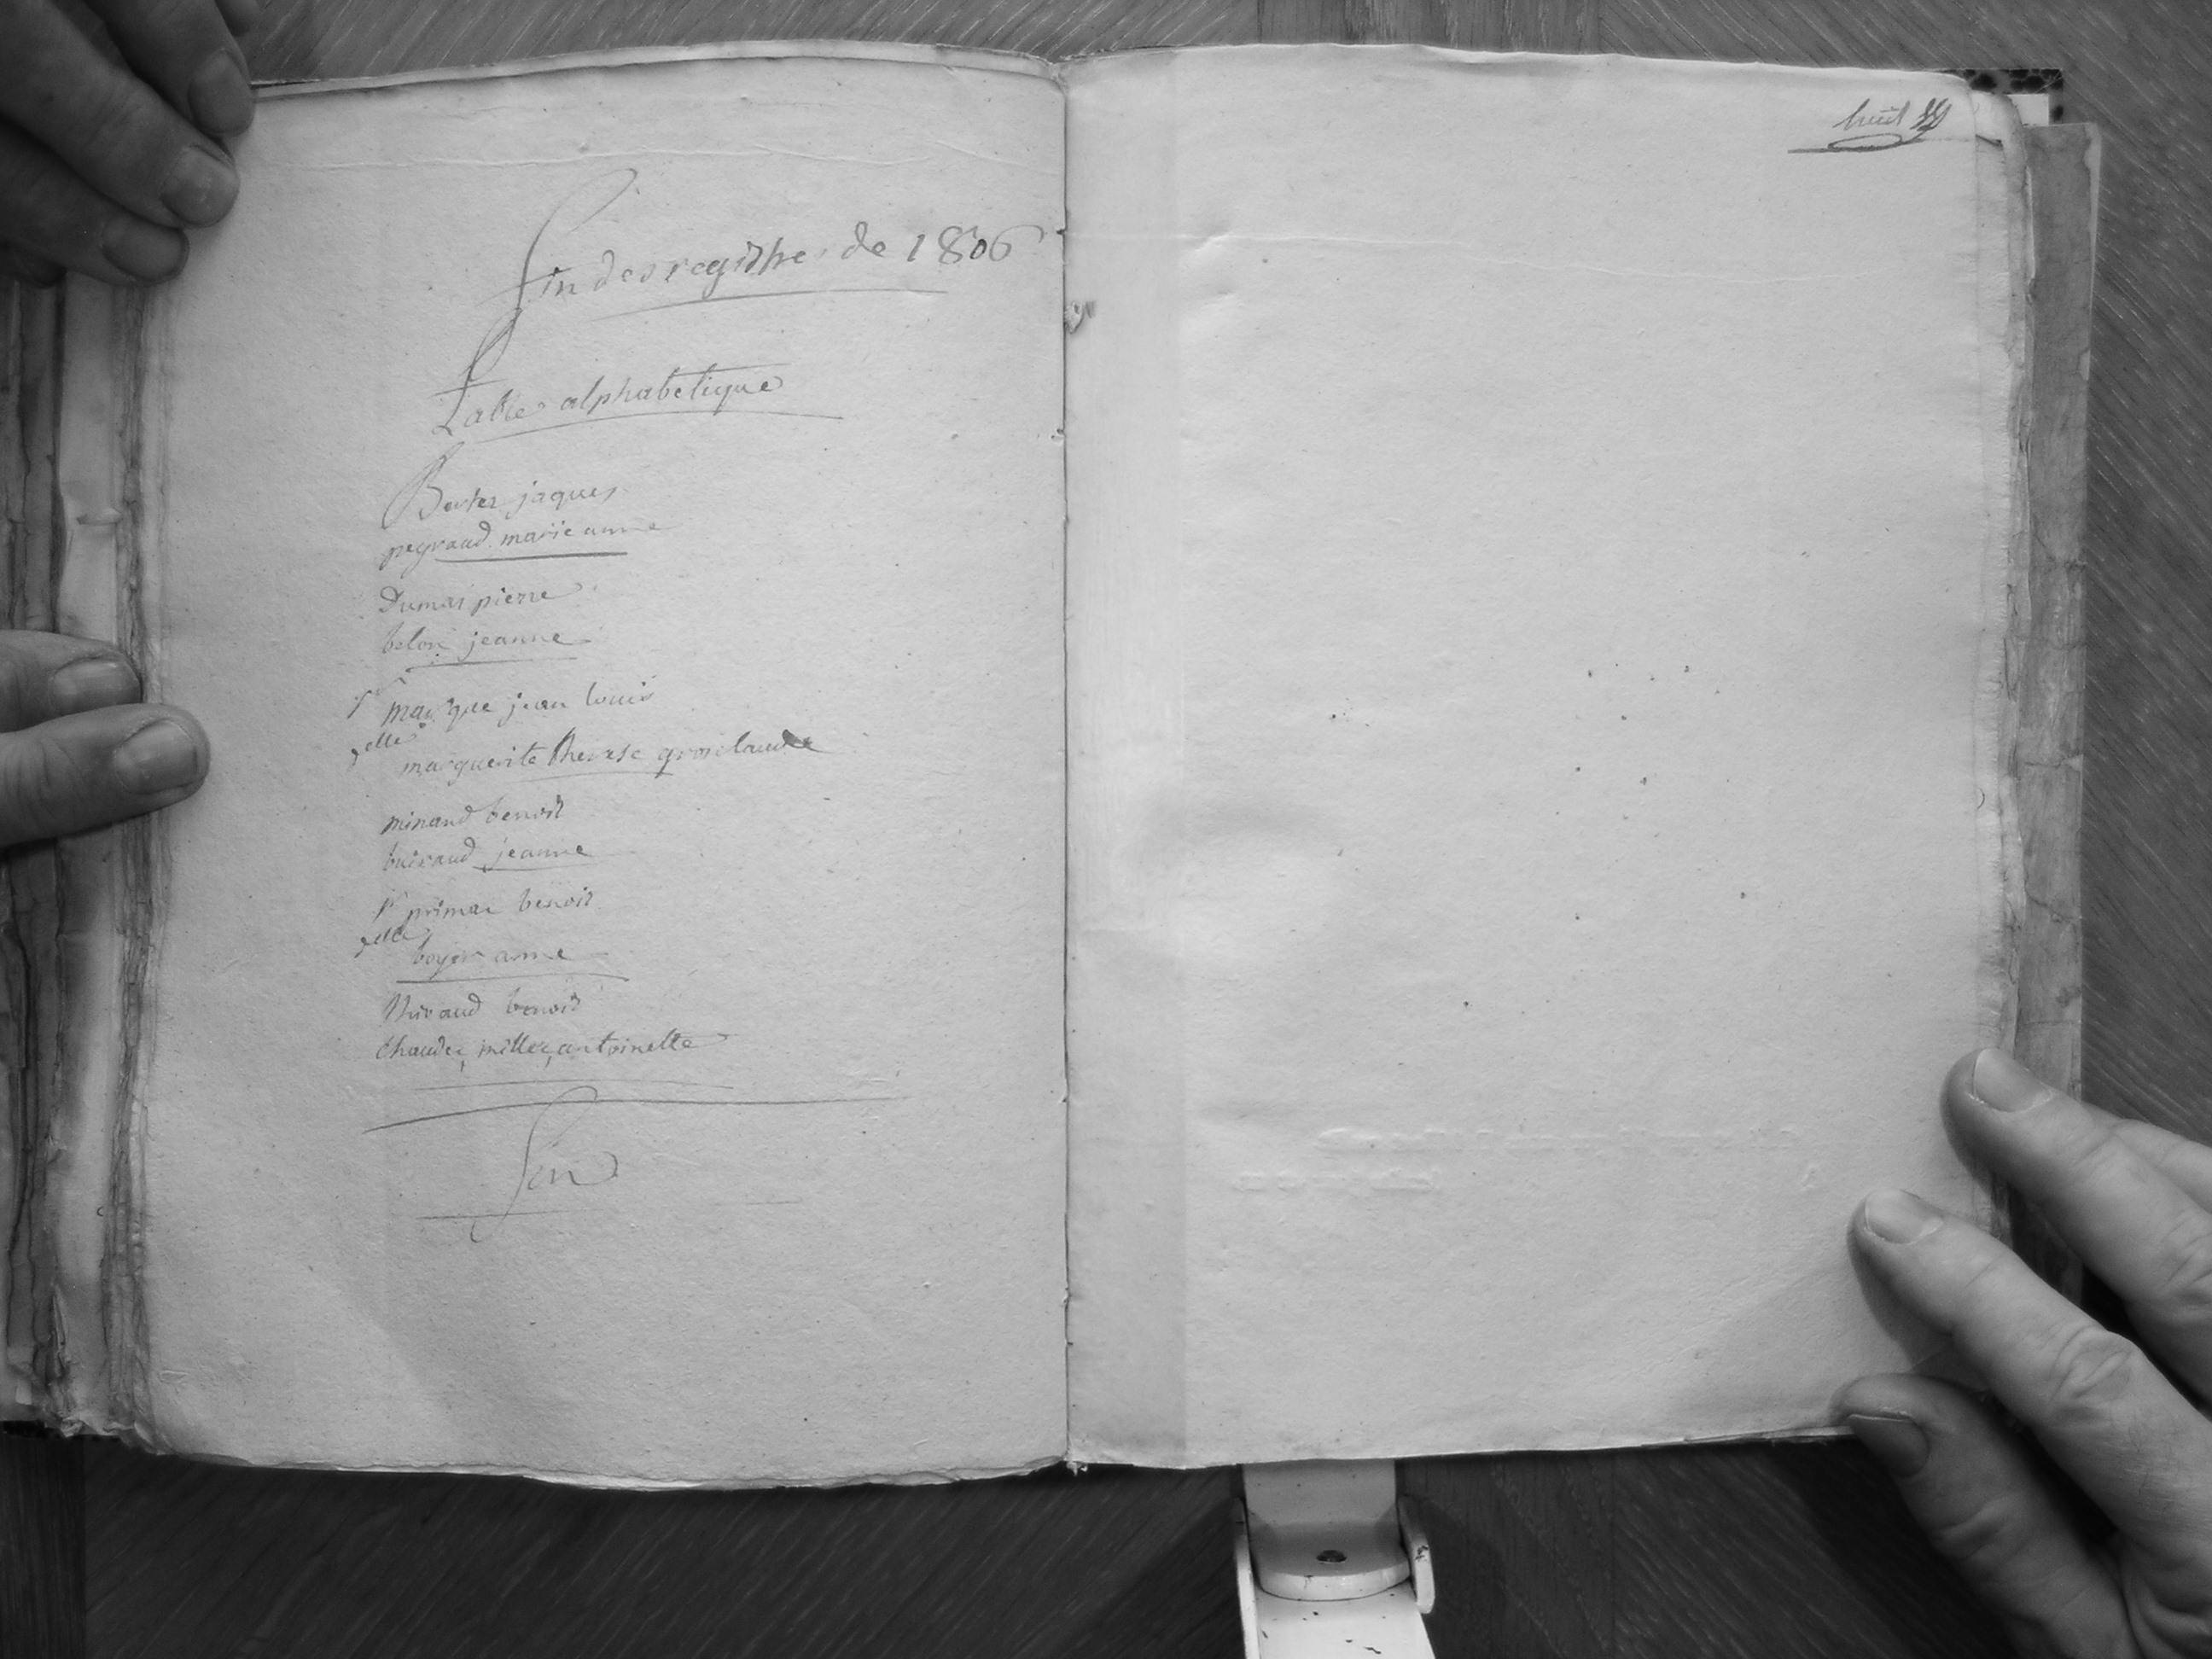 fin des registres de 1806
Table alphabetique
jaques
pegraud marie anne
Dumas pierre
belon jeanne
Sr marque jean louis
delle
marguerite therese grosclaude
minaud benoit
buiraud jeanne
Sr primar benoit
delle
boyer anne
thivaud benoit
Chaudes milles antoinette
fin
huit